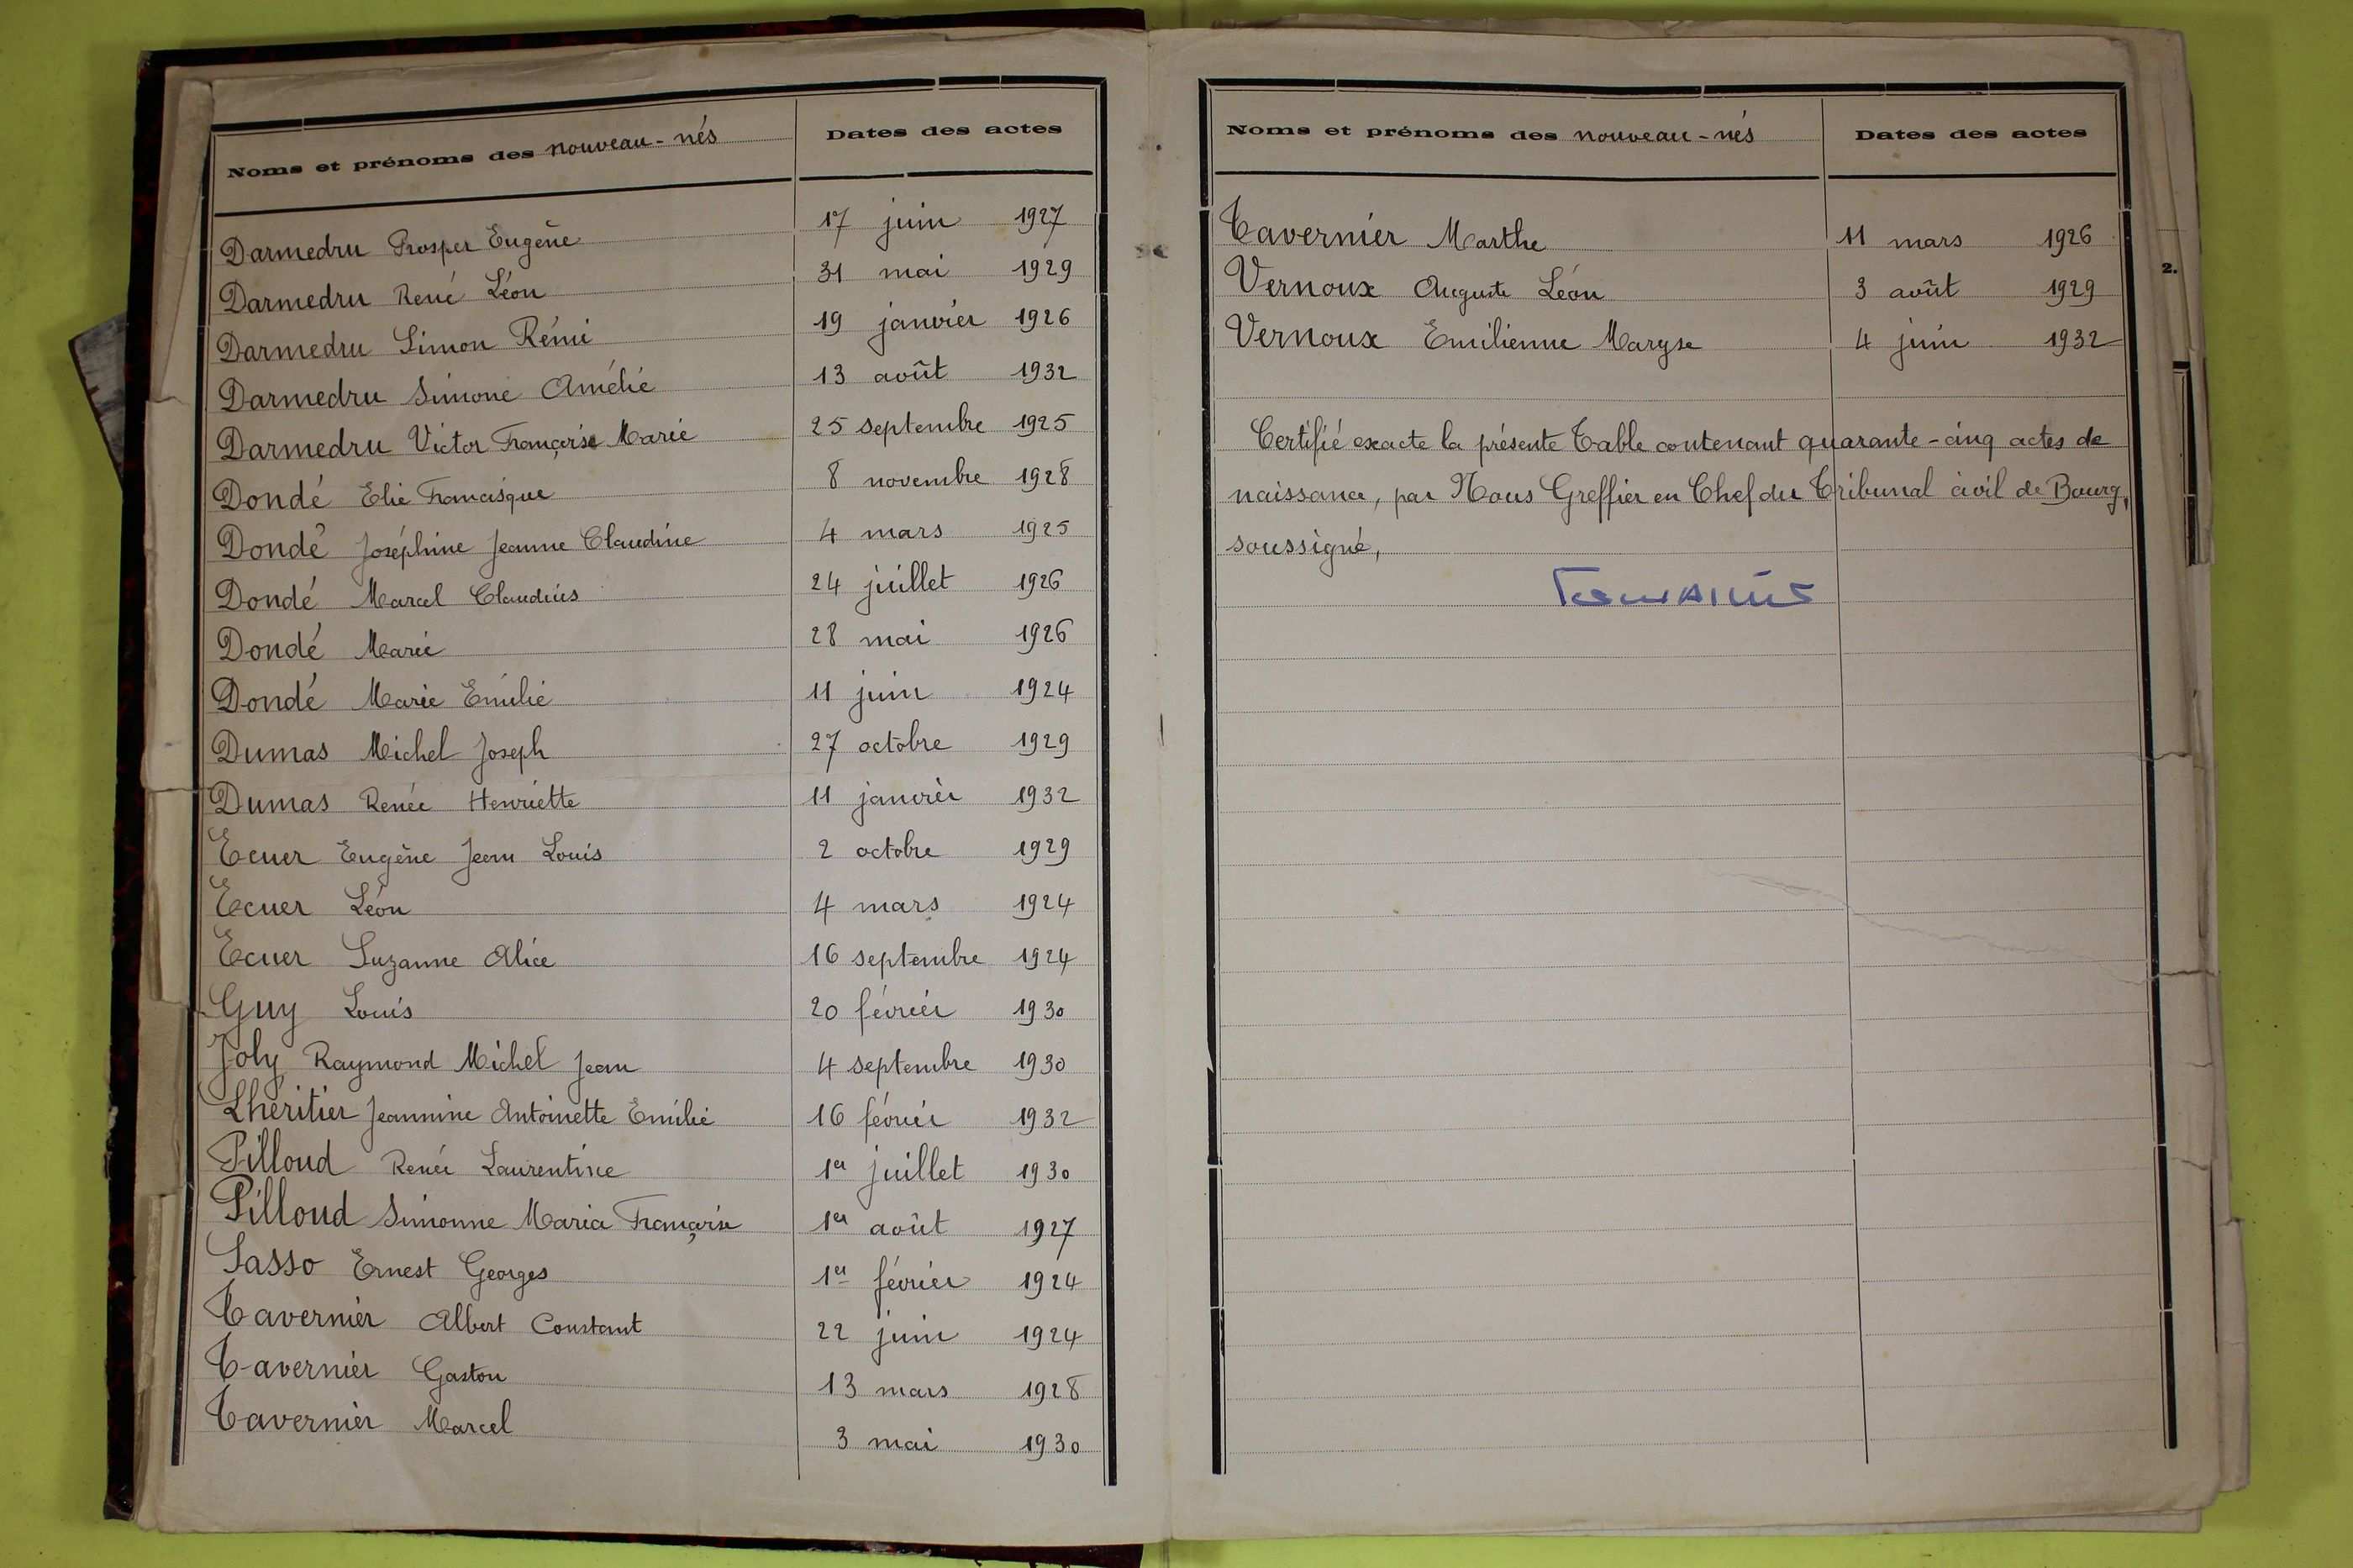 Noms et prénoms des nouveau-nés Dates des actes
Darmedru Prosper Eugène 17 juin 1927
Darmedru René Léon 31 mai 1929
Darmedru Simon Rémi 19 janvier 1926
Darmedru Simone Amélie 13 août 1932
Darmedru Victor Françoise Marie 25 septembre 1925
Dondé Elie Francisque 8 novembre 1928
Dondé Joséphine Jeanne Claudine 4 mars 1925
Dondé Marcel Claudius 24 juillet 1926
Dondé Marie 28 mai 1926
Dondé Marie Emilie 11 juin 1924
Dumas Michel Joseph 27 octobre 1929
Dumas Renée Henriette 11 janvier 1932
Ecuer Eugène Jean Louis 2 octobre 1929
Ecuer Léon 4 mars 1924
Ecuer Suzanne Alice 16 septembre 1924
Guy Louis 20 février 1930
Joly Raymond Michel Jean 4 septembre 1930
Lhéritier Jeannine Antoinette Emilie 16 février 1932
Pilloud Renée Laurentine 1er juillet 1930
Pilloud Simonne Maria Françoise 1er août 1927
Sasso Ernest Georges 1er février 1924
Tavernier Albert Constant 22 juin 1924
Tavernier Gaston 13 mars 1928
Tavernier Marcel 3 mai 1930
Noms et prénoms des nouveau-nés Dates des actes
Tavernier Marthe 11 mars 1926
Vernoux Auguste Léon 3 août 1929
Vernoux Emilienne Maryse 4 juin 1932
Certifié exacte la présente Table contenant quarante-cinq actes de
naissance, par Nous Greffier en Chef du Tribunal civil de Bourg,
soussigné,
2.